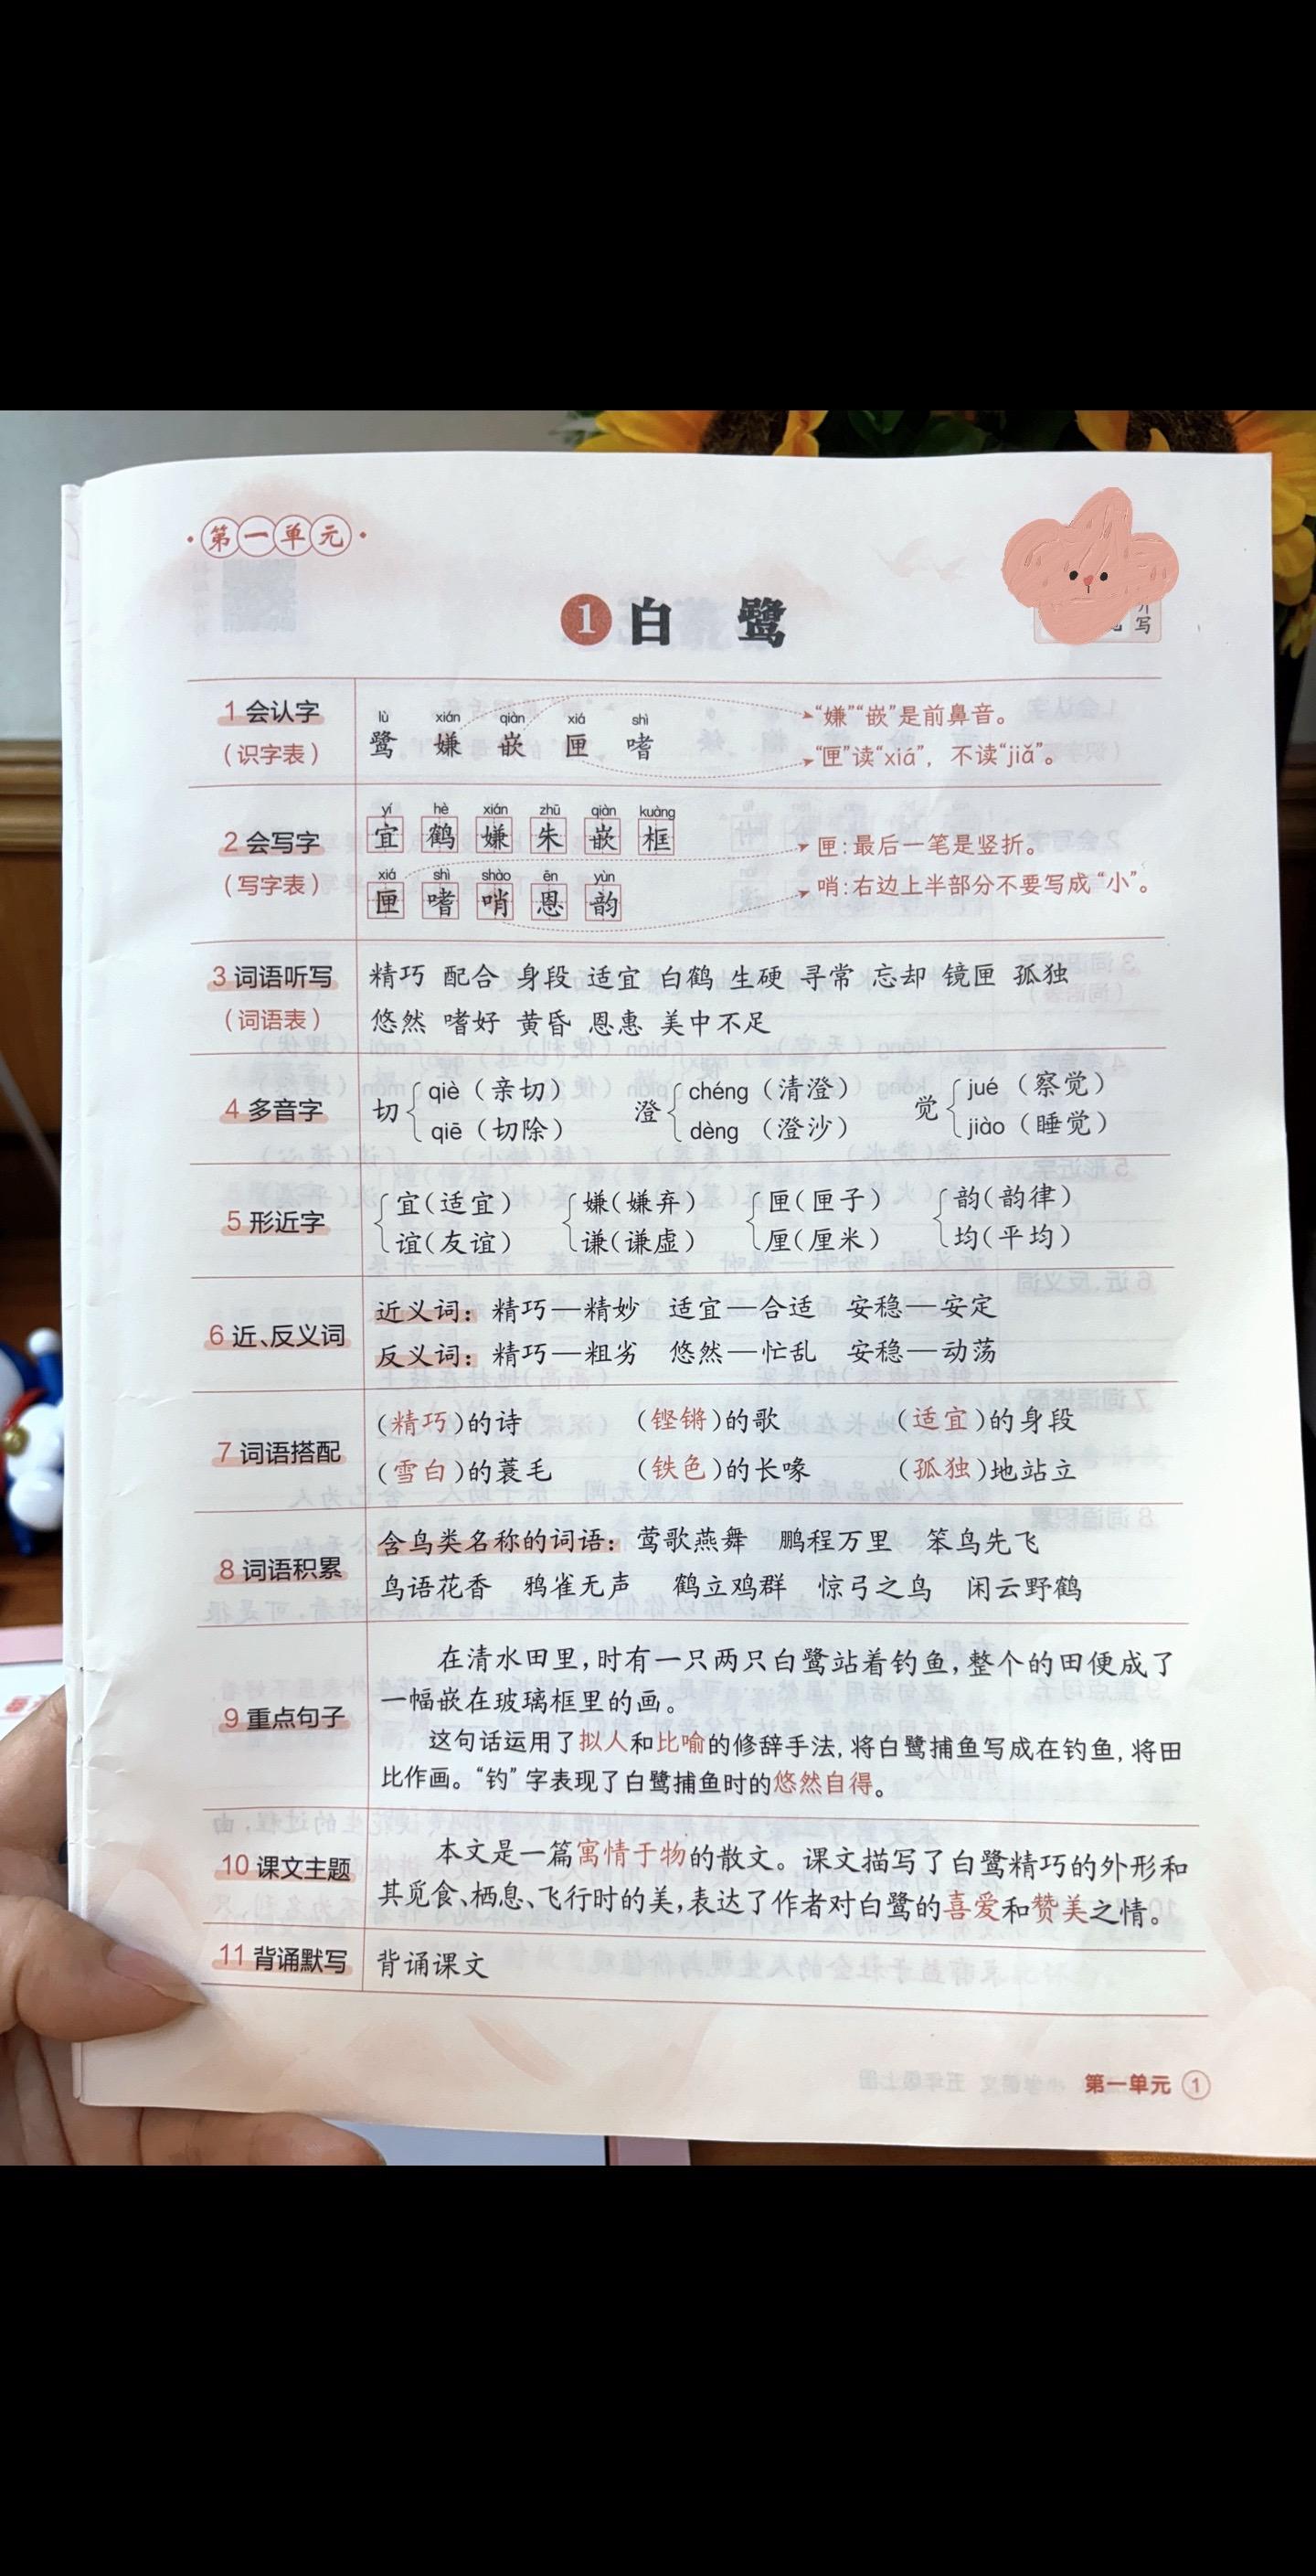 第一单元
1 白鹭
写
1 会认字
（识字表）
lù xián qiàn xiá shì
鹭 嫌 嵌 匣 嗜
“嫌”“嵌”是前鼻音。
“匣”读“xiá”，不读“jiǎ”。
2 会写字
（写字表）
yí hè xián zhū qiàn kuàng
宜 鹤 嫌 朱 嵌 框
xiá shì shào ēn yùn
匣 嗜 哨 恩 韵
匣：最后一笔是竖折。
哨：右边上半部分不要写成“小”。
3 词语听写
（词语表）
精巧 配合 身段 适宜 白鹤 生硬 寻常 忘却 镜匣 孤独
悠然 嗜好 黄昏 恩惠 美中不足
4 多音字
切 qiè（亲切） 澄 chéng（清澄） 觉 jué（察觉）
qiē（切除） dèng（澄沙） jiào（睡觉）
5 形近字
宜（适宜） 嫌（嫌弃） 匣（匣子） 韵（韵律）
谊（友谊） 谦（谦虚） 厘（厘米） 均（平均）
6 近、反义词
近义词：精巧—精妙 适宜—合适 安稳—安定
反义词：精巧—粗劣 悠然—忙乱 安稳—动荡
7 词语搭配
（精巧）的诗 （铿锵）的歌 （适宜）的身段
（雪白）的蓑毛 （铁色）的长喙 （孤独）地站立
8 词语积累
含鸟类名称的词语：莺歌燕舞 鹏程万里 笨鸟先飞
鸟语花香 鸦雀无声 鹤立鸡群 惊弓之鸟 闲云野鹤
9 重点句子
在清水田里，时有一只两只白鹭站着钓鱼，整个的田便成了
一幅嵌在玻璃框里的画。
这句话运用了拟人和比喻的修辞手法，将白鹭捕鱼写成在钓鱼，将田
比作画。“钓”字表现了白鹭捕鱼时的悠然自得。
10 课文主题
本文是一篇寓情于物的散文。课文描写了白鹭精巧的外形和
其觅食、栖息、飞行时的美，表达了作者对白鹭的喜爱和赞美之情。
11 背诵默写
背诵课文
第一单元 1